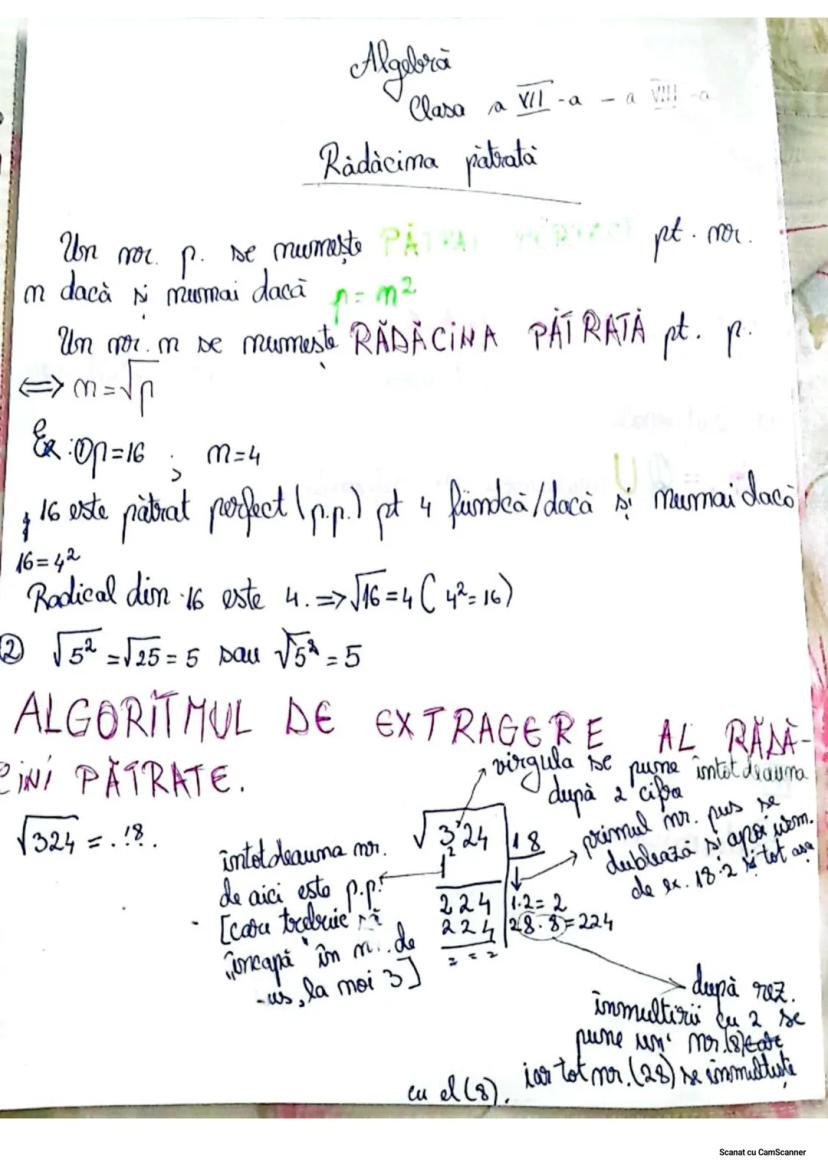 Algebră
Clasa a VII-a - a VIII-a
Rădăcina pătrată
Un nr. p. se numește PĂTRAT PERFECT pt. nr.
m dacă și numai dacă p=m²
Un nr. m se numește RĂDĂCINA PĂTRATĂ pt. p.
⟺ m=√p
Ex: ① p=16 ; m=4
16 este pătrat perfect (p.p.) pt 4 fiindcă/dacă și numai dacă
16=4²
Radical din 16 este 4. ⇒ √16=4 (4²=16)
② √5² = √25 = 5 sau √5² = 5
ALGORITMUL DE EXTRAGERE AL RĂDĂ-
CINI PĂTRATE.
virgula se pune întotdeauna
după 2 cifre
√324 = .18.
√3'24 | 18
1²
224 | 1·2=2
224 | 28·8=224
= = =
întotdeauna nr.
de aici este p.p.
[care trebuie să
"încapă" în n. de
-us, la noi 3]
primul nr. pus se
dublează și apoi urm.
de ex. 18·2 și tot așa
după rez.
înmulțirii cu 2 se
pune un nr. (8)
iar tot nr. (28) se înmulțește
cu el (8).
Scanat cu CamScanner